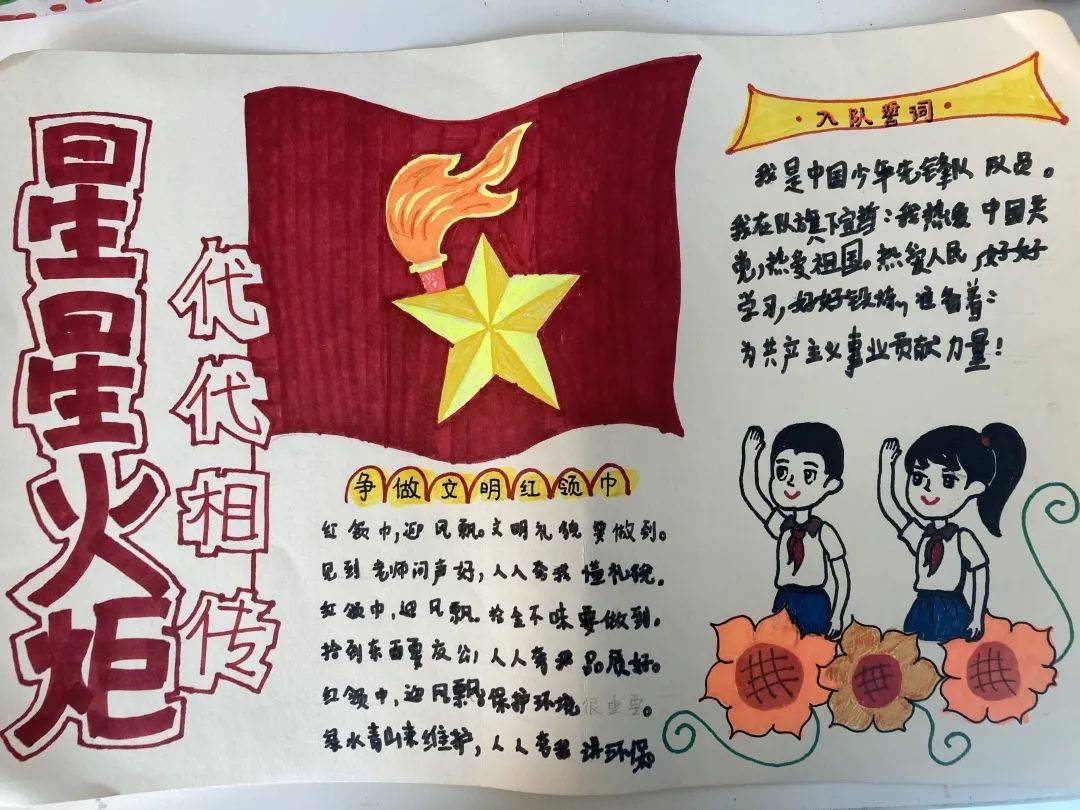 星星火炬
代代相传
争做文明红领巾
红领巾,迎风飘。文明礼貌要做到。
见到老师问声好,人人夸我懂礼貌。
红领巾,迎风飘。拾金不昧要做到。
拾到东西要交公,人人夸我品质好。
红领巾,迎风飘。保护环境很重要。
绿水青山来维护,人人夸我讲环保。
·入队誓词·
我是中国少年先锋队队员。
我在队旗下宣誓:我热爱中国共
党,热爱祖国。热爱人民,好好
学习,好好锻炼,准备着:
为共产主义事业贡献力量!